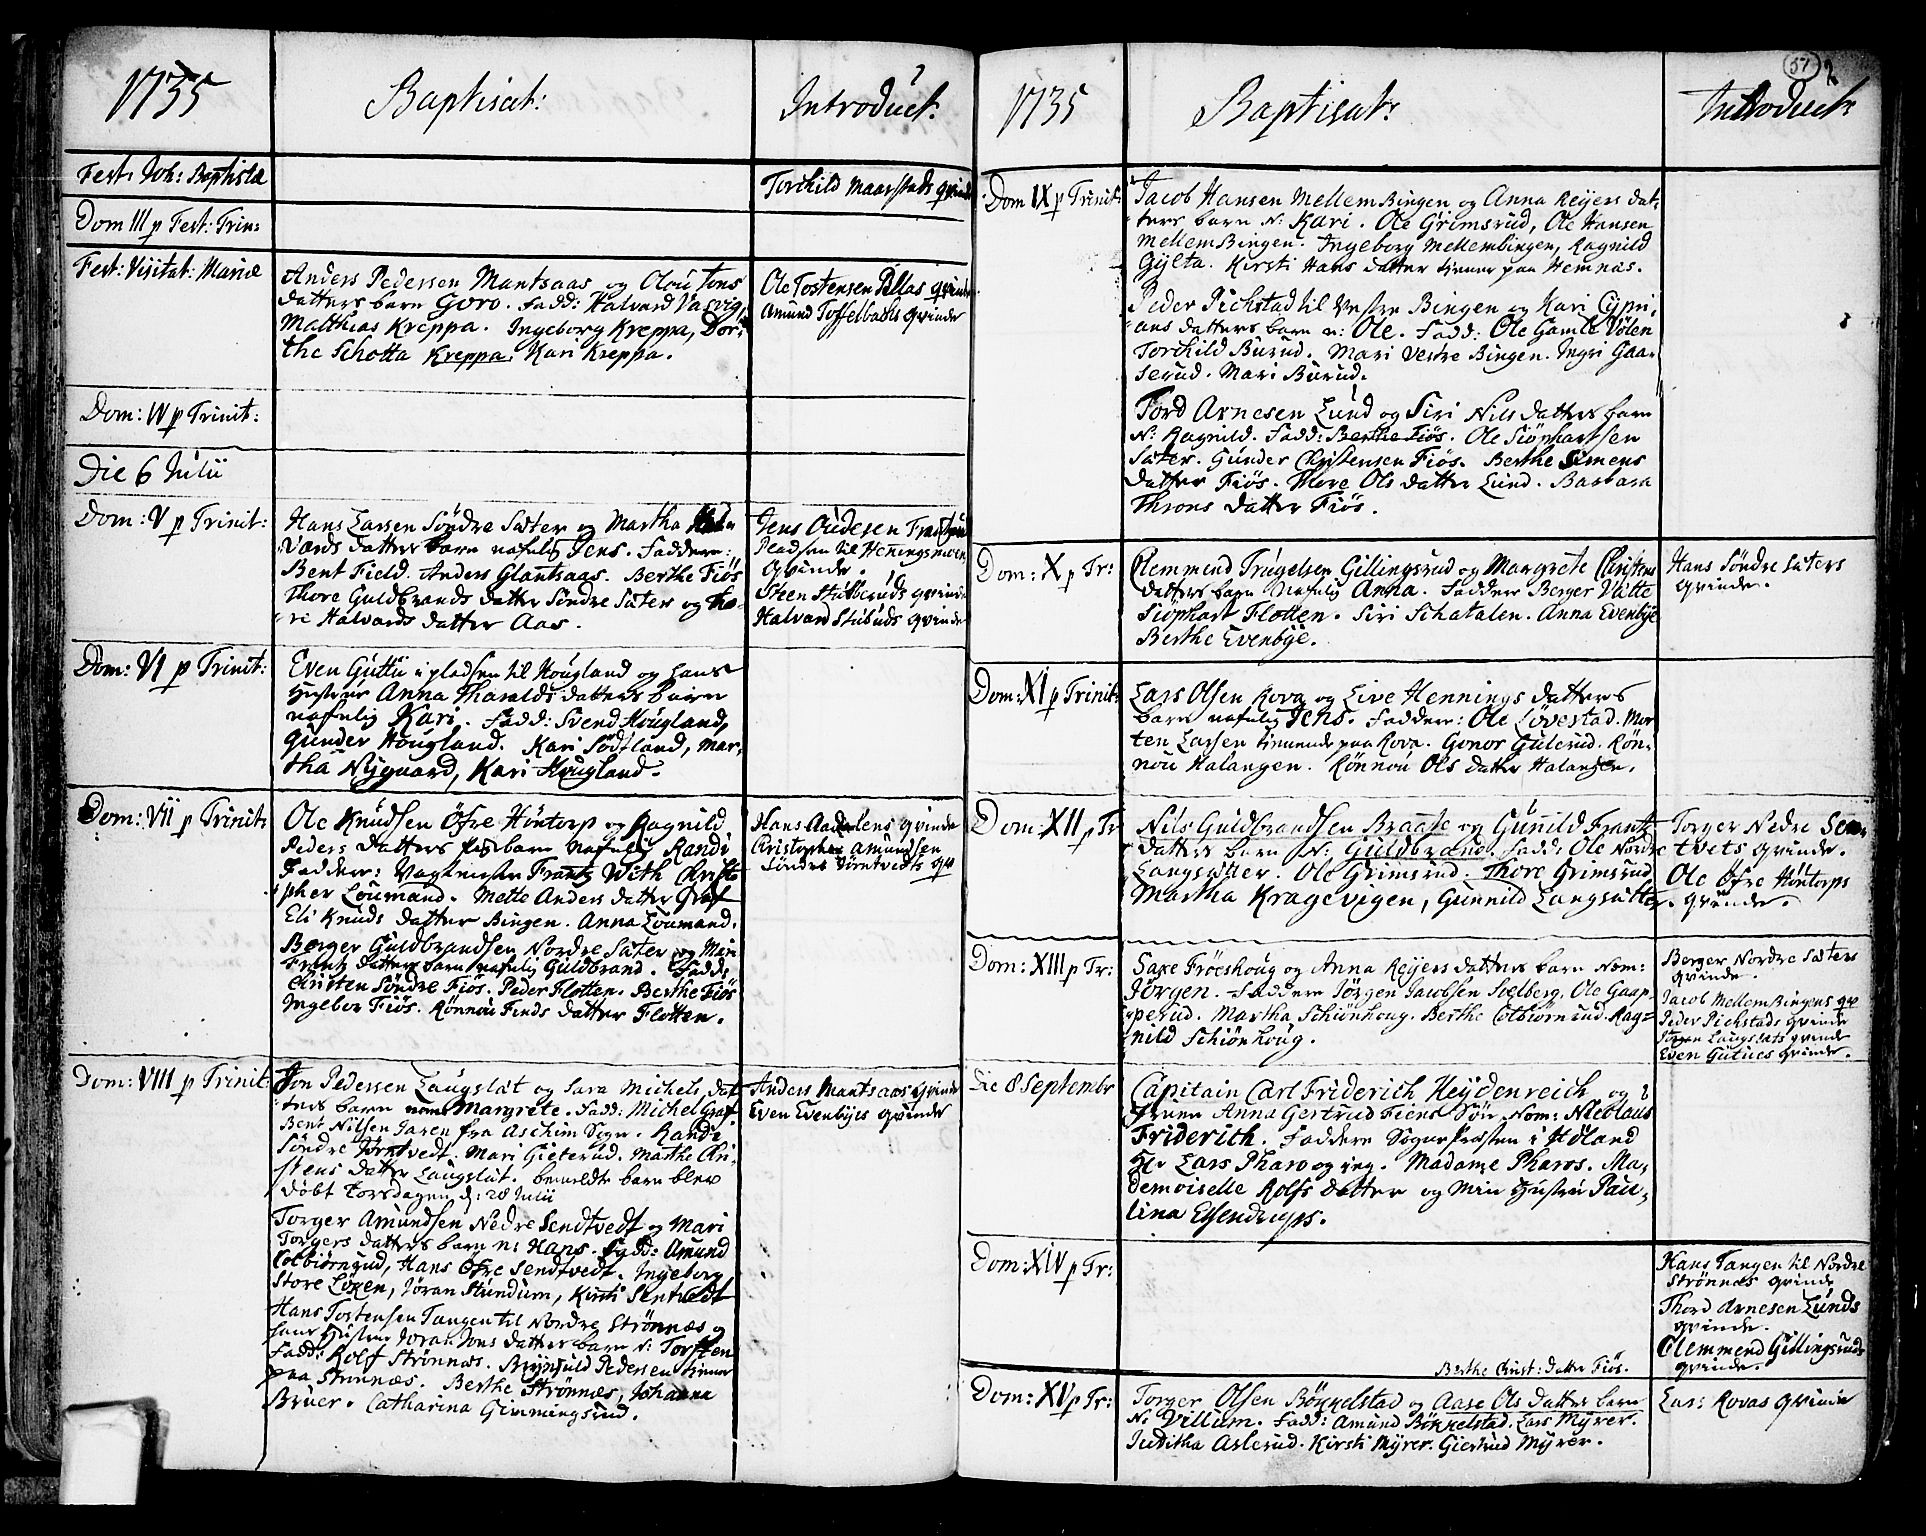 1735
Baptisat:
Introduct:
Fest: Joh: Baptistæ
Torchild Maarstads qvinde
Dom III p Fest: Trin:
Fest: Visitat: Mariæ
Anders Pedersen Mantsaas og Olou Jons
datters barn Goro. Fadd: Halvard Vasvig,
Matthias Kreppa. Ingeborg Kreppa, Dor:
the Schotta Kreppa, Kari Kreppa.
Ole Tostensen Pillas qvinde
Amund Toffelbachs qvinde
Dom: IV p Trinit:
Die 6 Julii
Dom: V p Trinit:
Hans Larsen Söndre Sæter og Martha Hal:
vards datters barn nafnlig Jens. Faddere:
Bent Field. Anders Glantsaas. Berthe Fiös
Thore Guldbrands datter Söndre Sæter og
Halvards datter Aas.
Jens Oudesen
Pladsen til Henningsmoen
qvinde.
Steen Stubberuds qvinde
Halvard Stubuds qvinde
Dom: VI p Trinit:
Even Guttu i pladsen til Hougland og hans
Hustrue Anna Tharalds datters barn
nafnlig Kari. Fadd: Svend Hougland,
Gunder Hougland. Kari Södtland, Mar:
tha Nygaard, Kari Hougland.
Dom: VII p Trinit:
Ole Knudsen Öfre Höntorp og Ragnild
Peders datters barn nafnlig Randi
Faddere: Vagtmester Frantz With Christo
pher Loumand. Mette Anders datter Graf
Eli Knuds datter Bingen. Anna Loumand.
Berger Guldbrandsen Nordre Sæter og Mari
Frantz datters barn nafnlig Guldbrand. Fadd:
Christen Söndre Fiös. Peder Flotten. Berthe Fiös
Ingebor Fiös. Rönnou Finds datter Flotten.
Hans Aadalens qvinde
Christopher Amundsen
Söndre Törntvedts qv
Dom: VIII p Trinit:
Jon Pedersen Laugslat og Sara Michels dat
ters barn nom: Margrete. Fadd: Michel Graf.
Bent Nilsen Jaren fra Aschim Sogn. Randi
Söndre Törntvedt. Mari Gieterud. Marthe Chri
stens datter Laugslat. bemeldte barn blev
döbt Torsdagen d: 28 Julii
Torger Amundsen Nedre Sendtvedt og Mari
Torgers datters barn n: Hans. Fadd: Amund
Colbiörnrud, Hans Öfre Sendtvedt. Ingeborg
Store Löken, Jöran Stundum, Kirsti Sentvedt
Hans Tostensen Tangen til Nordre Strönnæs og
hans Hustrue Joran Jons datters barn N: Torsten
Fadd: Rolf Strönnæs. Brynfuld Pedersen tiener
paa Strönnæs. Berthe Strönnæs, Johanna
Bruer. Catharina Gimmingsrud.
Anders Mantsaas qvinde
Even Evenbyes qvinde
57
2
1735
Baptisat:
Introduct:
Dom IX p Trinit:
Jacob Hansen Mellem Bingen og Anna Reyers dat:
ters barn N: Kari. Ole Grimsrud, Ole Hansen
Mellem Bingen. Ingeborg Mellembingen, Ragnild
Gylta. Kirsti Hans datter tiener paa Hemnæs.
Peder Pichstad til Vestre Bingen og Kari Cypri:
ans datters barn n: Ole. Fadd: Ole Gamle Völen
Torchild Burud. Mari Vestre Bingen. Ingri Gaa:
serud. Mari Burud.
Tord Arnesen Lund og Siri Nils datters barn
N: Ragnild. Fadd: Berthe Fiös. Ole Siöphartsen
Sæter. Gunder Christensen Fiös. Berthe Simens
datter Fiös. Thore Ols datter Lund. Barbara
Throns datter Fiös.
Dom: X p Tr:
Clemmend Trugelsen Gillingsrud og Margrete Christens
datters barn Nafnlig Anna. Faddere Berger Vutte
Siöphart Flotten. Siri Schatalen. Anna Evenbye
Berthe Evenbye.
Hans Söndre Sæters
qvinde.
Dom: XI p Trinit:
Lars Olsen Rova og Live Hennings datters
barn nafnlig Jens. Faddere: Ole Lövestad. Mor
ten Larsen tienende paa Rova. Gonor Gulerud. Rön:
nou Halangen. Rönnou Ols datter Halangen.
Dom: XII p Tr
Nils Guldbrandsen Braase og Gunild Frantz
datters barn N: Guldbrand. Fadd: Ole Nordre
Langsæter. Ole Grimsrud. Thore Grimsrud
Martha Kragevigen, Gunnild Langsætter.
Torger Nedre Sen:
tvets qvinde.
Ole Öfre Höntorps
qvinde.
Dom: XIII p Tr:
Saxe Fröeshoug og Anna Reyers datters barn Nom:
Jörgen. Faddere Jörgen Jacobsen Sielberg, Ole Gaap:
perud. Martha Schiönhoug. Berthe Colbiörnrud. Rag:
nild Schiönhoug.
Berger Nordre Sæters
qvinde.
Jacob Mellem Bingens qv
Peder Pichstads qvinde
Jörgen Laugslats qvinde
Even Gutues qvinde.
Die 8 Septembr
Capitain Carl Friderich Heydenreich og
Fruen Anna Gertrud Fiens Sön Nom: Nicolaus
Friderich. Faddere Sogne Præsten i Höland
Hr Lars Pharo og jeg. Madame Pharos. Ma:
demoiselle Rolfs datter og Min Hustru Pau:
lina Essendrups.
Dom: XIV p Tr:
Hans Tangen til Nordre
Strönnæs qvinde
Thord Arnesen Lunds
qvinde.
Clemmend Gillingsruds
qvinde.
Berthe Christ: datter Fiös.
Dom: XV p Tr:
Torger Olsen Bökkelstad og Aase Ols datters barn
N: Villum. Fadd: Amund Bökkelstad. Lars Myrer.
Juditha Aslerud. Kirsti Myrer. Giertrud Myrer.
Lars Rovas qvinde